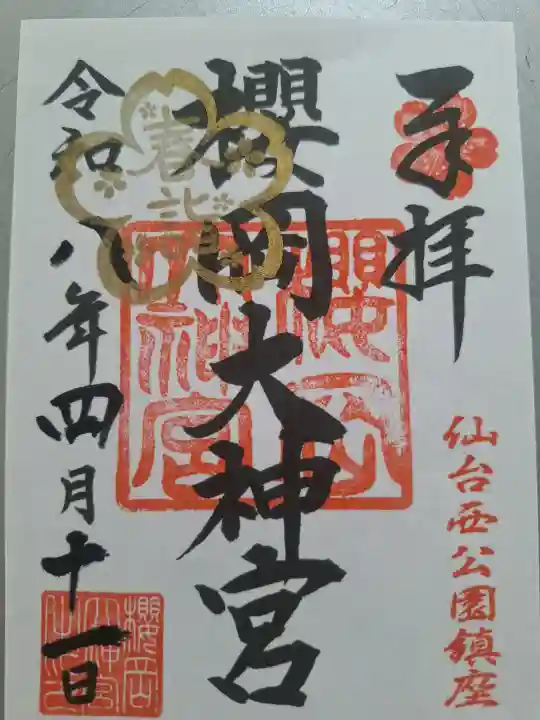 奉拝
仙台西公園鎮座
櫻岡大神宮
櫻岡大神宮
春詣
令和八年四月十一日